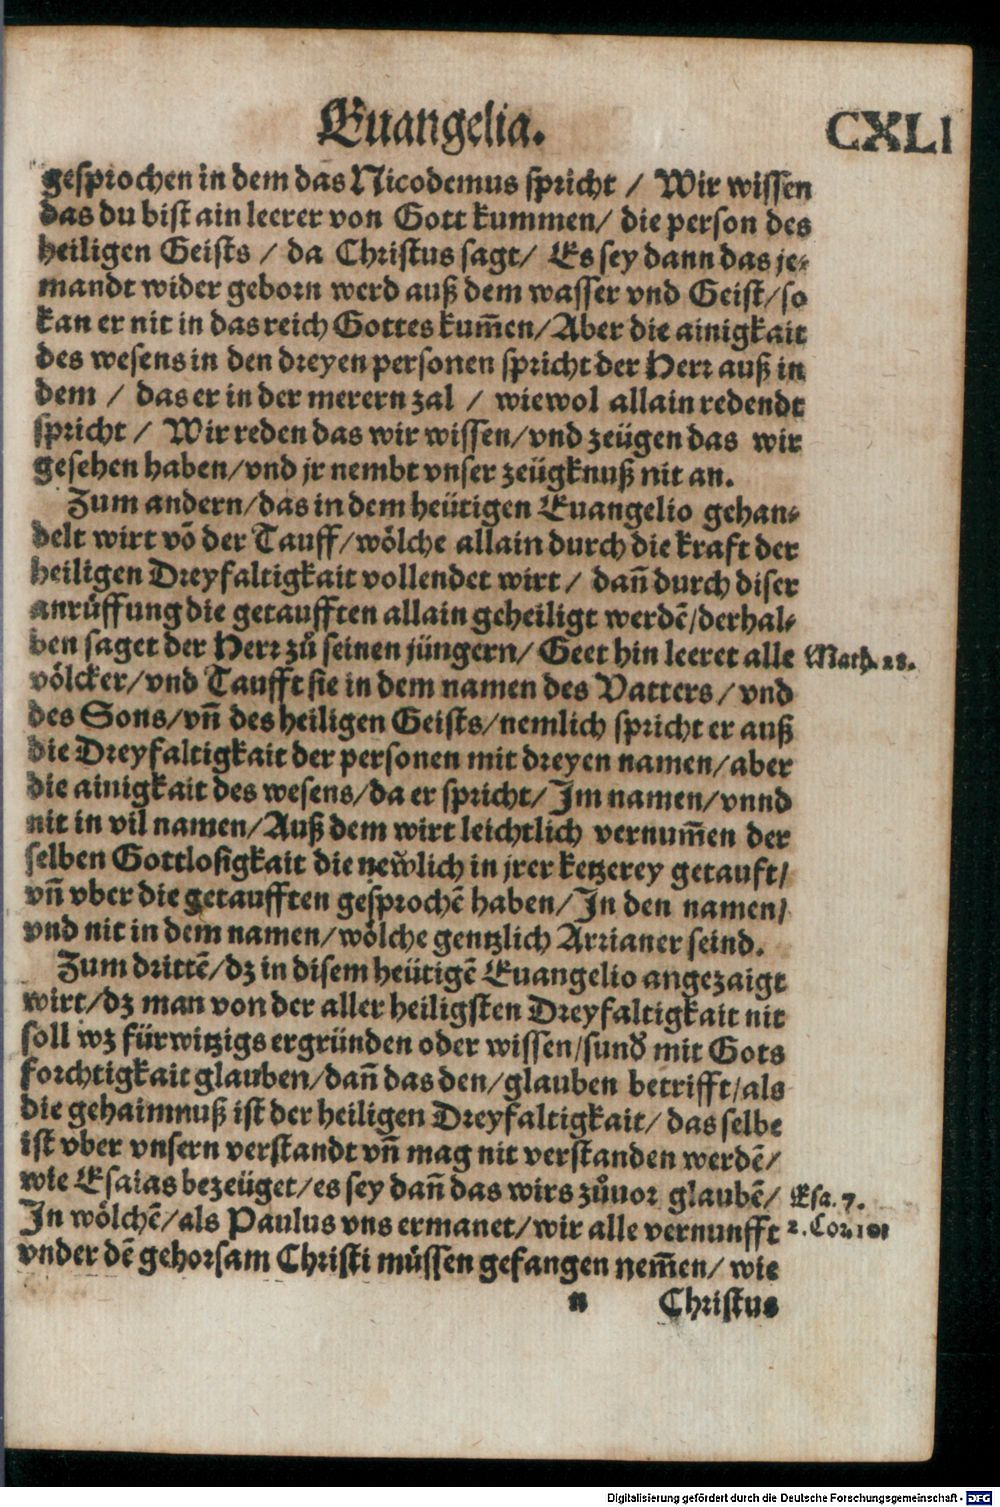 Euangelia. CXLI
gesprochen in dem das Nicodemus spricht / Wir wissen
das du bist ain leerer von Gott kummen/ die person des
heiligen Geists / da Christus sagt/ Es sey dann das je⸗
mandt wider geborn werd auß dem wasser vnd Geist/so
kan er nit in das reich Gottes kum̄en/Aber die ainigkait
des wesens in den dreyen personen spricht der Herr auß in
dem / das er in der merern zal / wiewol allain redendt
spricht / Wir reden das wir wissen/vnd zeügen das wir
gesehen haben/vnd jr nembt vnser zeügknuß nit an.
Zum andern/das in dem heütigen Euangelio gehan⸗
delt wirt vō der Tauff/wölche allain durch die kraft der
heiligen Dreyfaltigkait vollendet wirt / dañ durch diser
anrůffung die getaufften allain geheiligt werdē/derhal⸗
ben saget der Herr zů seinen jüngern/ Geet hin leeret alle
Math. 28.
völcker/vnd Taufft sie in dem namen des Vatters/vnd
des Sons/vñ des heiligen Geists/nemlich spricht er auß
die Dreyfaltigkait der personen mit dreyen namen/aber
die ainigkait des wesens/da er spricht/Im namen/vnnd
nit in vil namen/Auß dem wirt leichtlich vernum̄en der
selben Gottlosigkait die newlich in jrer ketzerey getauft/
vñ vber die getaufften gesprochē haben/In den namen/
vnd nit in dem namen/wölche gentzlich Arrianer seind.
Zum drittē/dz in disem heütigē Euangelio angezaigt
wirt/dz man von der aller heiligsten Dreyfaltigkait nit
soll wz fürwitzigs ergründen oder wissen/sund̄ mit Gots
forchtigkait glauben/dañ das den/glauben betrifft/als
die gehaimnuß ist der heiligen Dreyfaltigkait/ das selbe
ist vber vnsern verstandt vñ mag nit verstanden werdē/
wie Esaias bezeüget/es sey dañ das wirs zůuor glaubē/
Esa. 7.
In wölchē/als Paulus vns ermanet/wir alle vernunfft
2. Cor. 10
vnder dē gehorsam Christi müssen gefangen nem̄en/ wie
n Christus
Digitalisierung gefördert durch die Deutsche Forschungsgemeinschaft - DFG